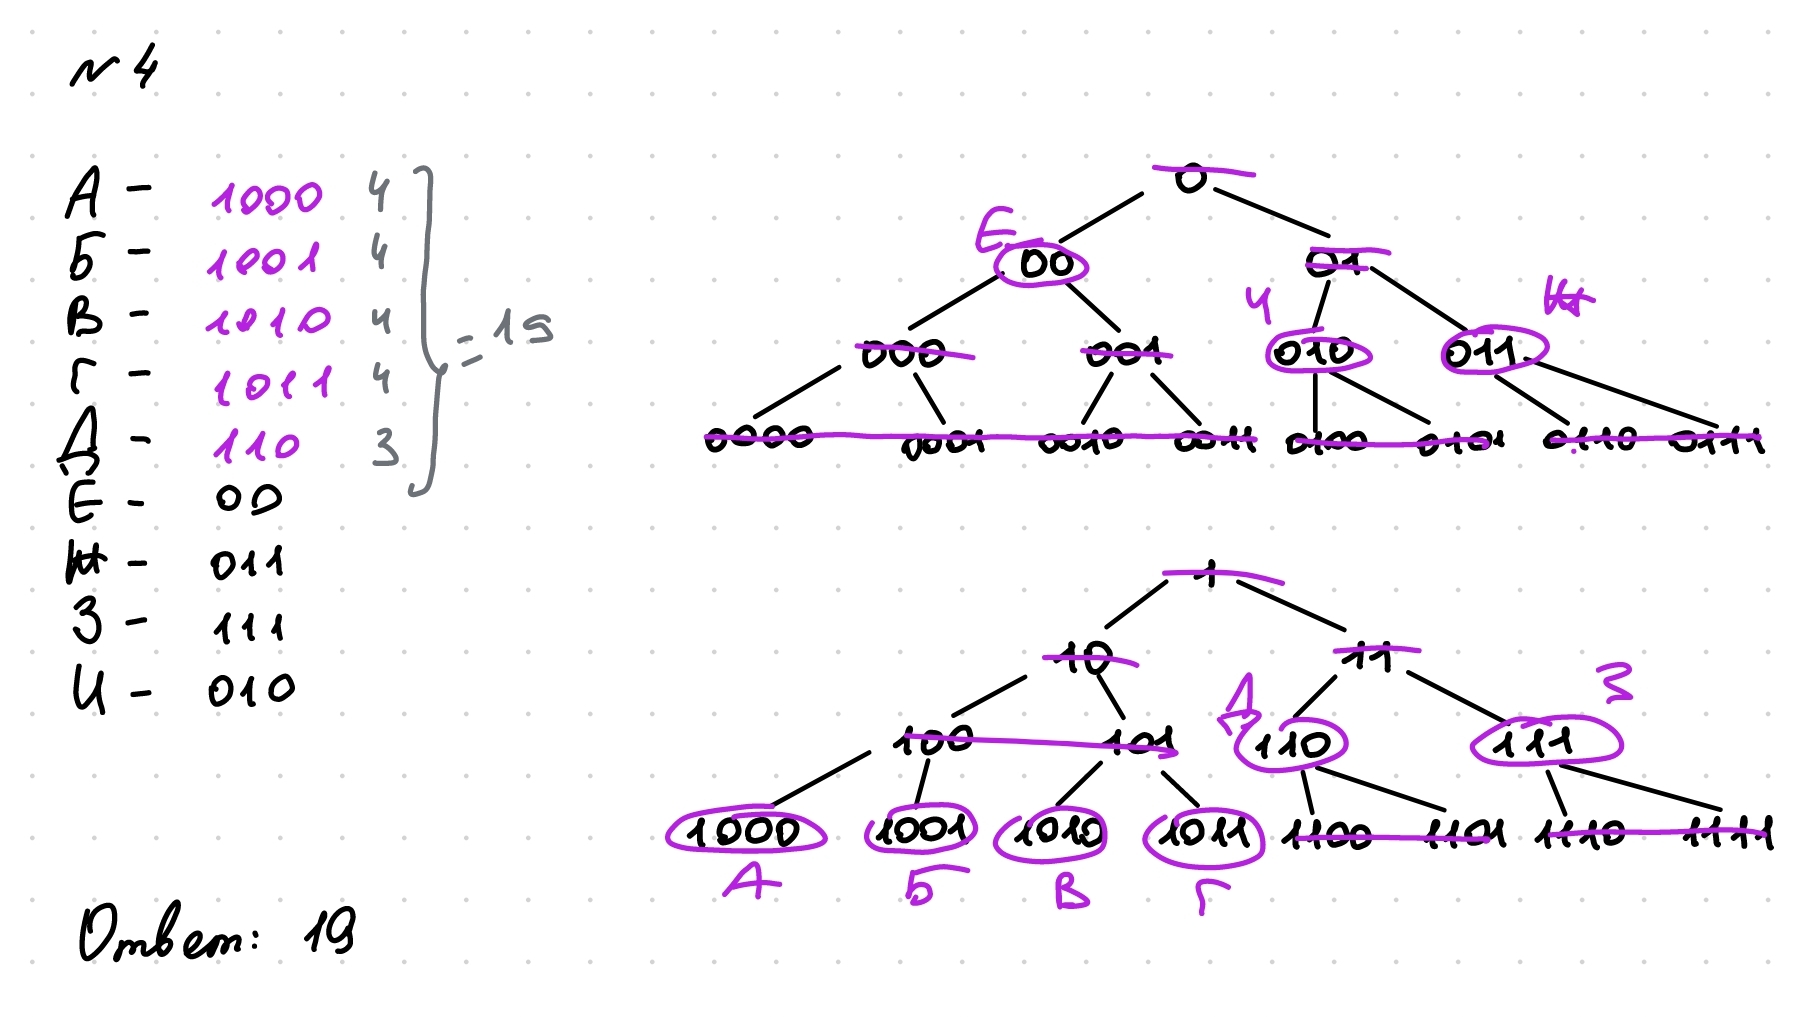 №4
А - 1000 4
Б - 1001 4
В - 1010 4
Г - 1011 4
Д - 110 3
= 19
Е - 00
Ж - 011
З - 111
И - 010
Ответ: 19
0
Е
00 01
И Ж
000 001 010 011
0000 0001 0010 0011 0100 0101 0110 0111
1
10 11
Д З
100 101 110 111
1000 1001 1010 1011 1100 1101 1110 1111
А Б В Г